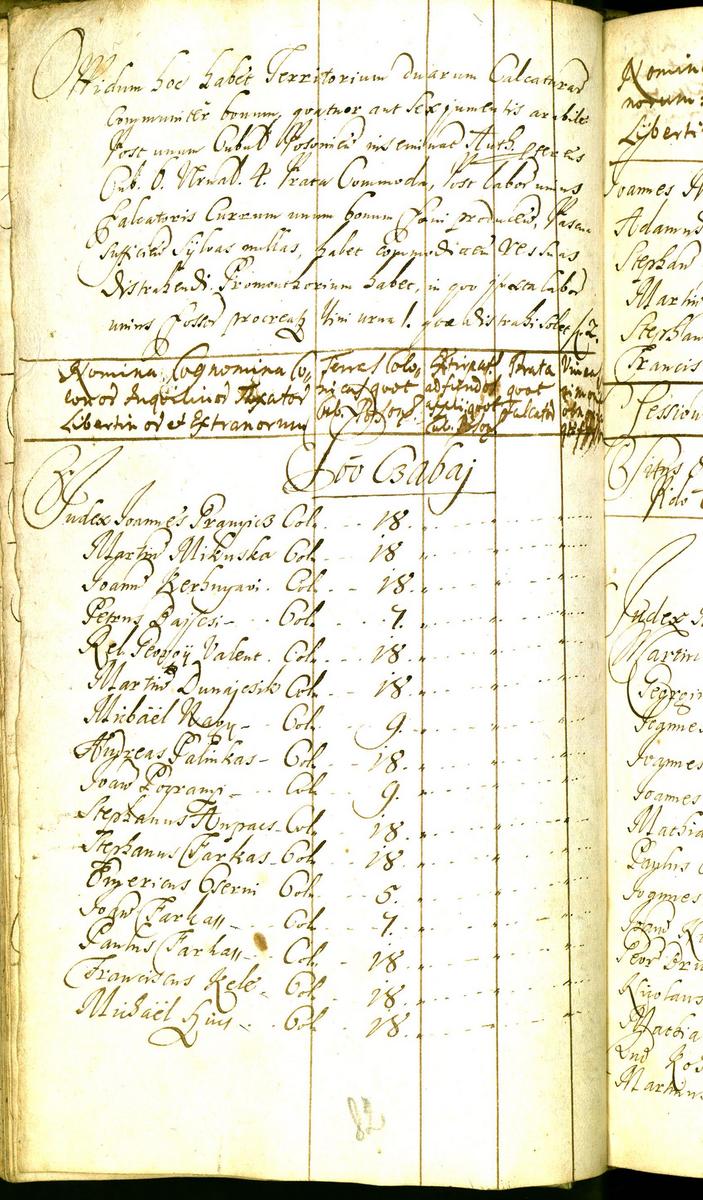 Oppidum hoc habet Territorium duarum Calcaturarum
communiter bonum, quatuor aut sex jumentis arabile
Post unum Cubul. Posoniens. inseminat. Auth.
Cub. 6. Urnal. 4. Prata Commoda, post labor unius
Falcatoris Currum unum bonum Foeni producens, Pascua
sufficiens Sylvas nullas, habet commoditatem res suas
distrahendi. Promonthorium habet, in quo juxta labor
unius Fossor procreat Vini urna 1. quae distrahi solet f. 2.
Nomina Cognomina Co=
lonor Inquilinor Taxator
Libertinor et Extranorum
Terras Colo,
nicas quot
Cub. Poson.
Extirpat.
quot
Cub. Poson
Prata
quot
Falcator
Vinea
Föö Czabaj
Judex Joannes Pranyicz Col. 18.
Martin Mikuska Col. 18
Joann Kerhnyavi. Col. 18.
Petrus Col. 7.
Rel. Georgy Valent. Col. 18.
Martin Dunajcsik Col. 18
Michaël Nagy Col. 9.
Andreas Palinkas Col. 18.
Joan Pogranyi Col. 9.
Stephanus Col. 18
Stephanus Farkas Col. 18
Emericus Cserni Col. 5.
Joan Farkass Col. 7.
Paulus Farkass Col. 18
Franciscus Kele Col. 18
Michaël Col. 18.
82
Nomin
norum
Liberti
Joannes
Adamus
Stephan
Martin
Stephan
Francis
Judex
Martin
Georgi
Joannes
Joannes
Joannes
Mathia
Paulus
Joannes
Nicolaus
Mathia
Martinus